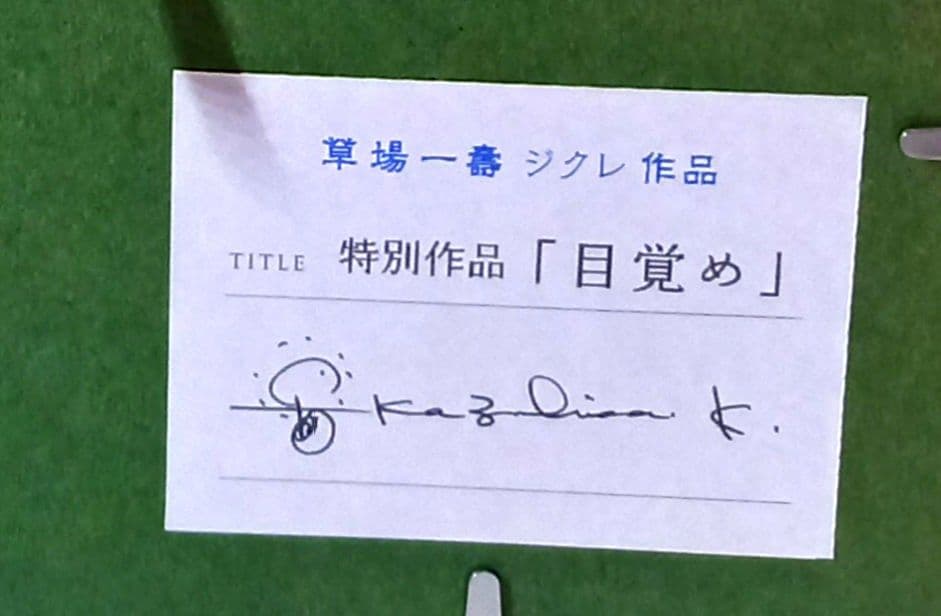 草場一壽 ジクレ 作品
TITLE 特別作品「目覚め」
Kazuhisa K.